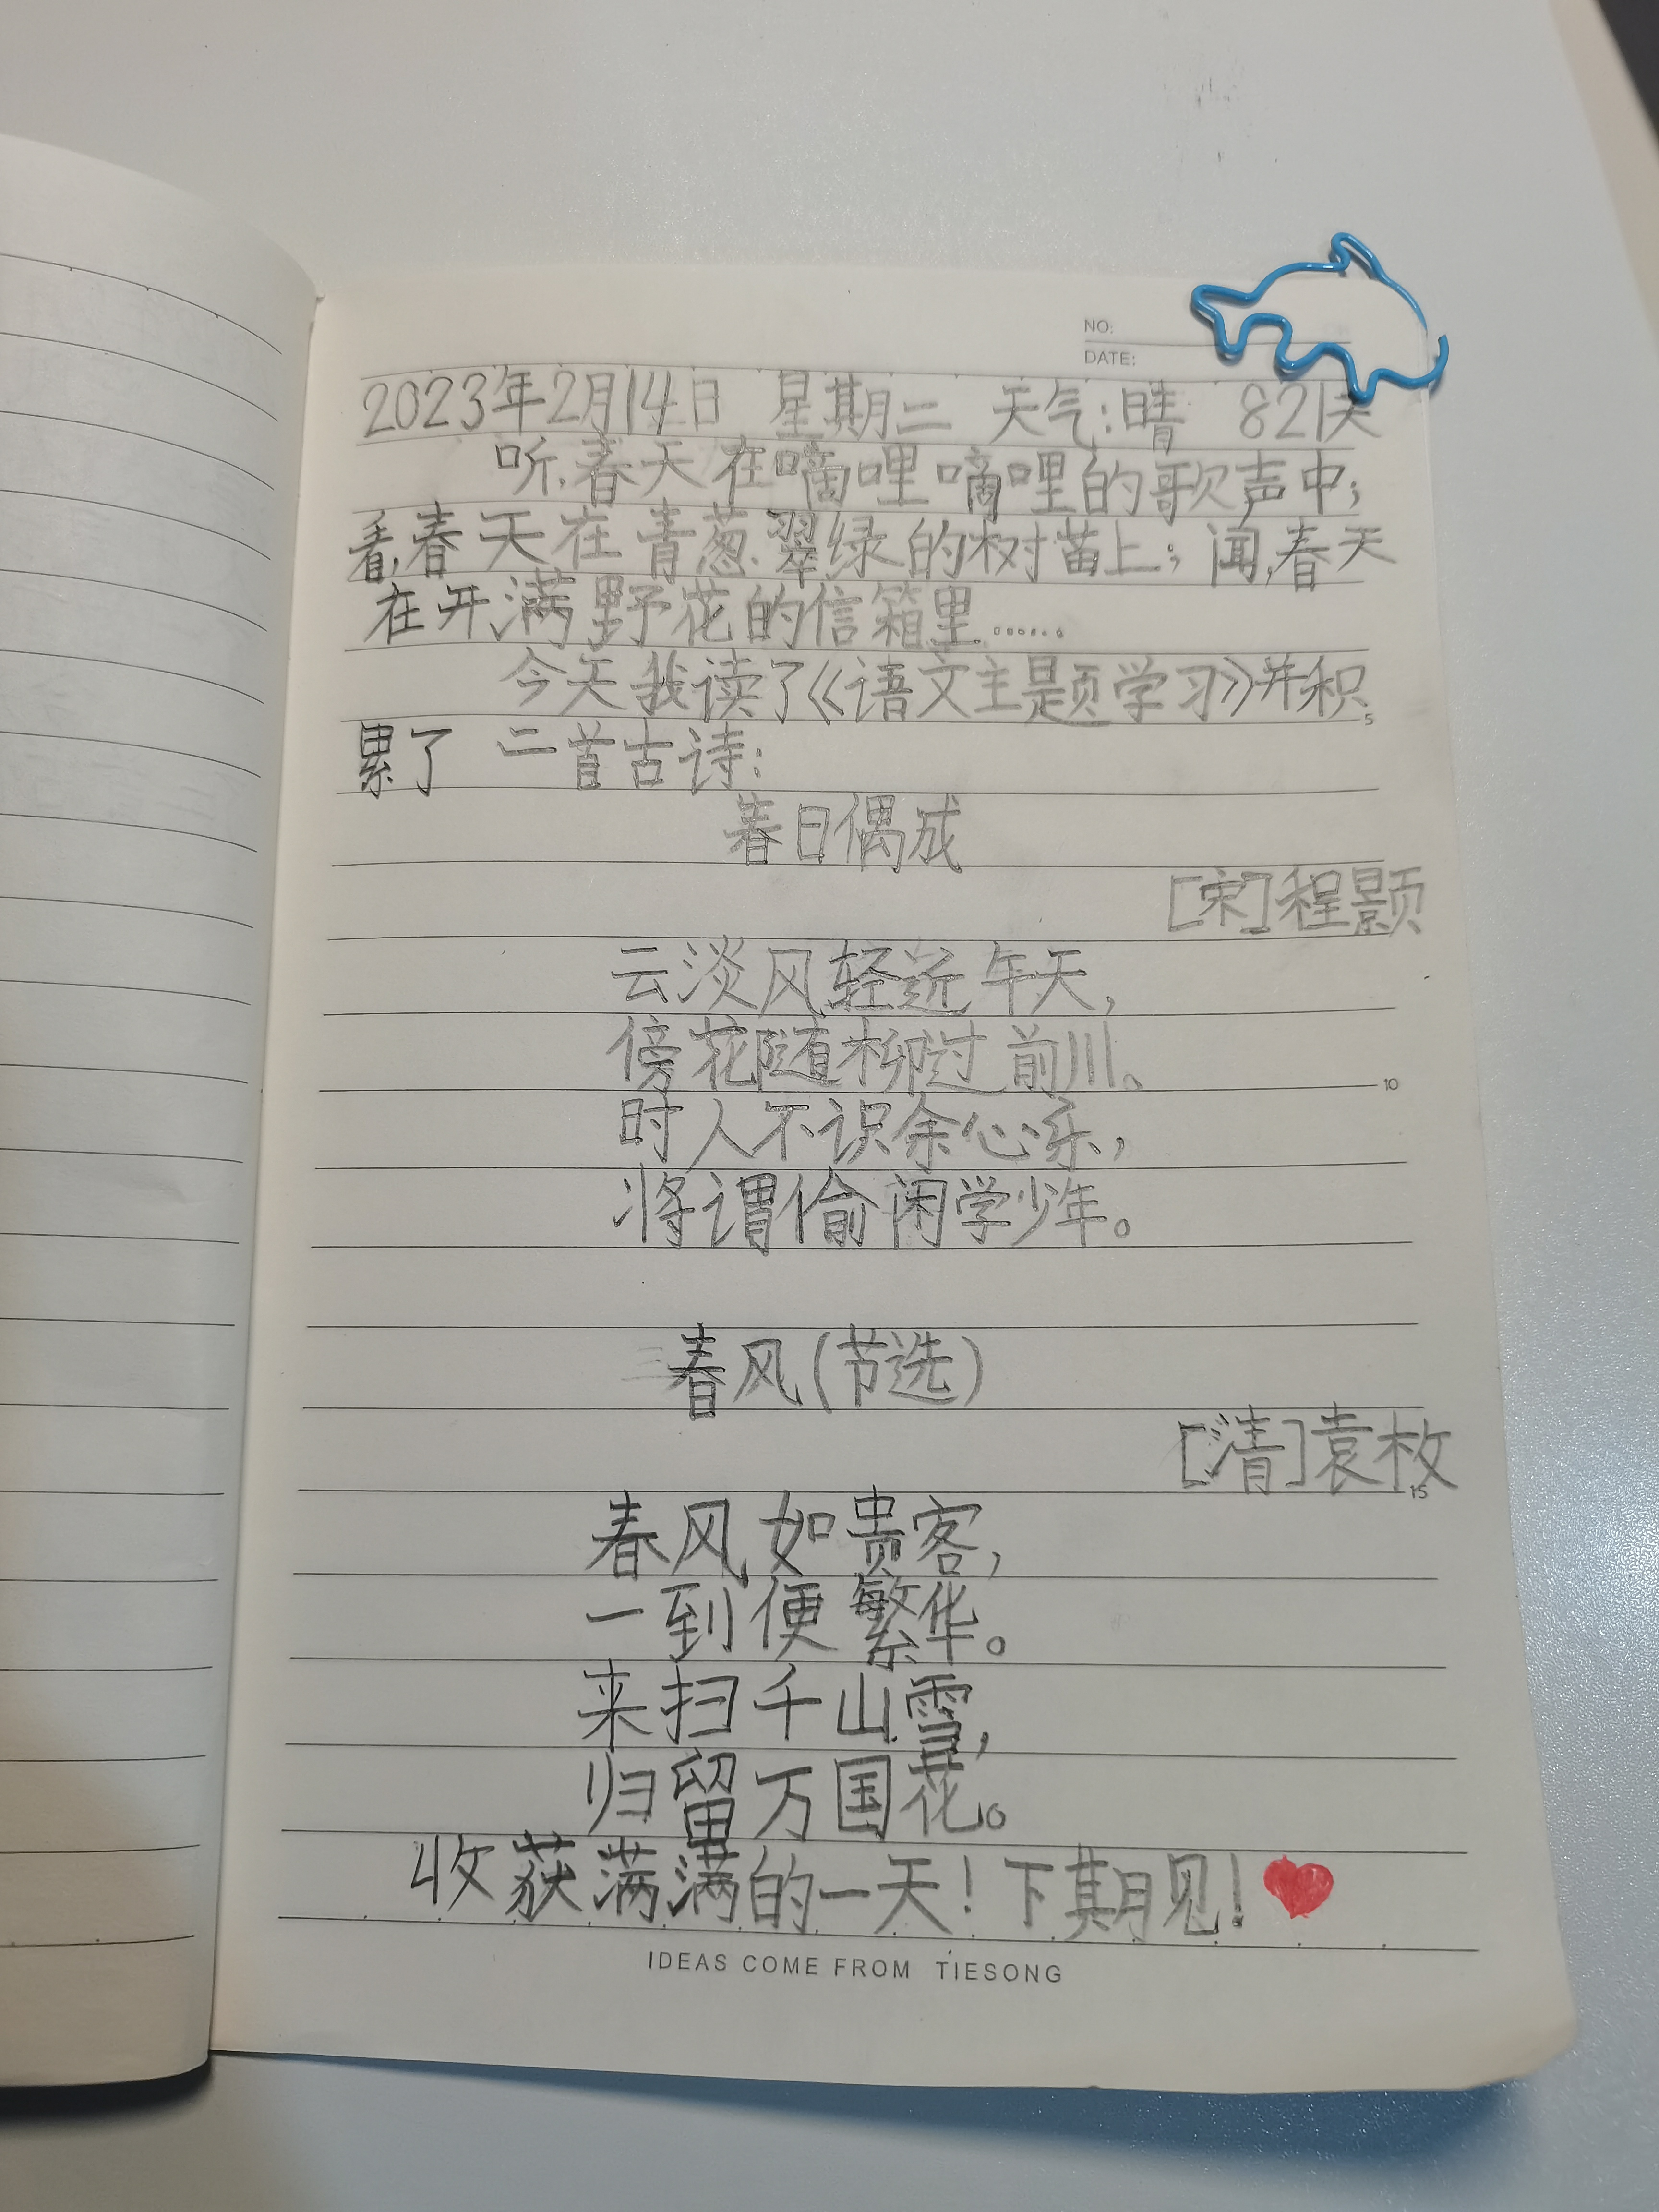 NO:
DATE:
2023年2月14日 星期二 天气:晴 821天
听,春天在嘀哩嘀哩的歌声中;
看,春天在青葱翠绿的树苗上;闻,春天
在开满野花的信箱里……
今天我读了《语文主题学习》并积
5
累了 二首古诗:
春日偶成
[宋]程颢
云淡风轻近午天,
傍花随柳过前川。
10
时人不识余心乐,
将谓偷闲学少年。
春风(节选)
[清]袁枚
15
春风如贵客,
一到便繁华。
来扫千山雪,
归留万国花。
收获满满的一天!下期见!
IDEAS COME FROM TIESONG